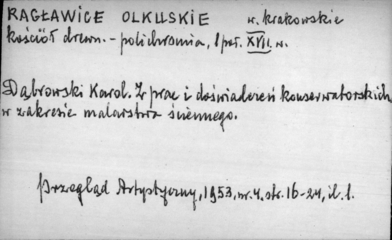 RAGŁAWICE OLKUSKIE w. krakowskie
kościół drewn. - polichromia, I poł. XVII w.
Dąbrowski Karol. Z prac i doświadczeń konserwatorskich
w zakresie malarstwa ściennego.
Przegląd Artystyczny, 1953, nr. 4. str. 16-24, il. 1.